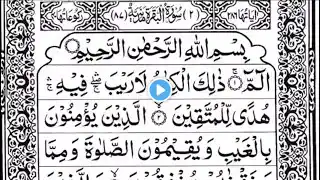 اٰیاتها ٢٨٦ (٢) سُوْرَةُ الْبَقَرَةِ مَدَنِیَّةٌ (٨٧) رکوعاتها
بِسْمِ اللّٰهِ الرَّحْمٰنِ الرَّحِیْمِ
الٓمّٓ ۚ ذٰلِكَ الْكِتٰبُ لَا رَیْبَ ۛ فِیْهِ ۛ
هُدًی لِّلْمُتَّقِیْنَ ۙ الَّذِیْنَ یُؤْمِنُوْنَ
بِالْغَیْبِ وَیُقِیْمُوْنَ الصَّلٰوةَ وَمِمَّا